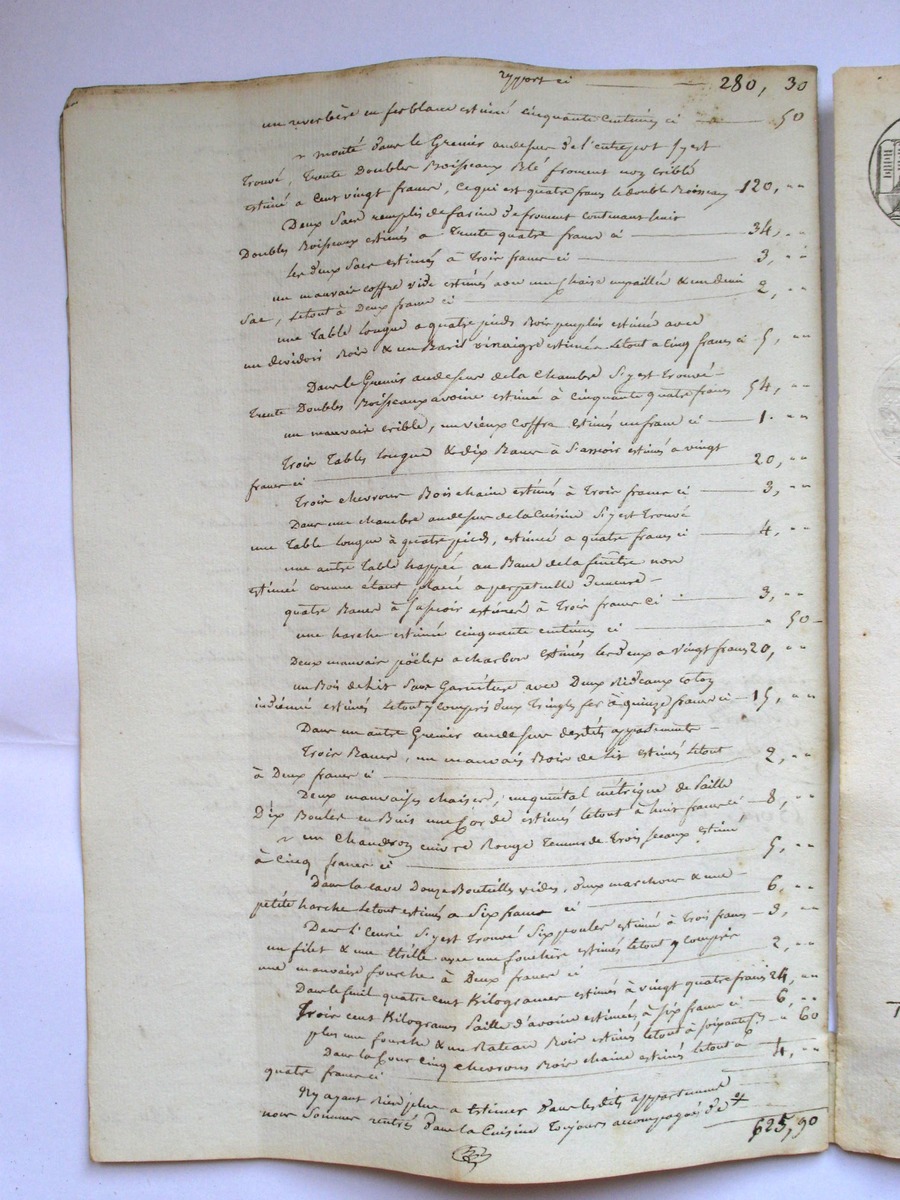 report ci — 280, 30
un reverbère en ferblanc estimé cinquante Centimes ci — " — 50
monté dans le Grenier audessus de l'entrepot s'y est
trouvé, trente Doubles Boisseaux Blé froment non criblé
estimé a Cent vingt francs, ce qui est quatre francs le double Boisseau 120, ""
Deux Sacs remplis de farine de froment contenant huit
Doubles Boisseaux estimés a trente quatre francs ci — 34, ""
les deux Sacs estimés à trois francs ci — 3, ""
un mauvais coffre vide estimés avec une chaise empaillée & un demi
Sac, le tout à Deux francs ci — 2, ""
une Table longue a quatre pieds Bois peuplier estimé avec
un devidoir Bois & un Baril vinaigre estimés le tout a Cinq francs ci 5, ""
Dans le Grenier audessus de la Chambre S'y est trouvé
trente Doubles Boisseaux avoine estimé à cinquante quatre francs 54, ""
un mauvais crible, un vieux Coffre estimés un franc ci — 1. ""
trois Tables longues & dix Bancs à S'assoir estimés a vingt
francs ci — 20, ""
trois chevrons Bois chaine estimés à trois francs ci — 3, ""
Dans une chambre audessus de la Cuisine S'y est trouvé
une Table longue à quatre pieds, estimée a quatre francs ci — 4, ""
une autre table au Banc de la fenêtre non
estimée comme étant placée a perpetuelle Demeure —
quatre Bancs à S'assoir estimés à trois francs Ci — 3, ""
une hache estimée cinquante centimes ci — " 50
Deux mauvais poëles a charbon estimés les deux a vingt francs 20, ""
un Bois de Lit Sans Garniture avec Deux Rideaux coton
indienne estimés le tout y compris deux Tringles fer à quinze francs ci — 15, ""
Dans un autre Grenier audessus desdits appartements —
Trois Bancs, un mauvais Bois de Lit estimés le tout
à Deux francs ci — 2, ""
Deux mauvaises chaises, un quintal métrique de Paille
Dix Boules en Buis une Corde estimés le tout à huit francs ci — 8, ""
un Chaudron cuivre Rouge tenant de trois Seaux estimé
à Cinq francs ci — 5, ""
Dans la cave Douze Bouteilles vides, deux & une —
petite hache le tout estimés a Six francs ci — 6, ""
Dans l'Ecurie S'y est trouvé Six poules estimé à trois francs 3, ""
un filet & une étrille avec une estimés le tout y compris
une mauvaise fourche à Deux francs ci — 2, ""
Dans le quatre cent Kilogrames estimés à vingt quatre francs 24, ""
Trois cent Kilogrames Paille d'avoine estimées à six francs ci — 6, ""
plus une fourche & un Rateau Bois estimés le tout à soixante Cs " 60
Dans la Cour Cinq chevrons Bois chaine estimés le tout à
quatre francs ci — 4, ""
N'y ayant Rien plus a Estimer Dans lesdits appartements
nous Sommes rentrés dans la Cuisine toujours accompagné de
625, 90